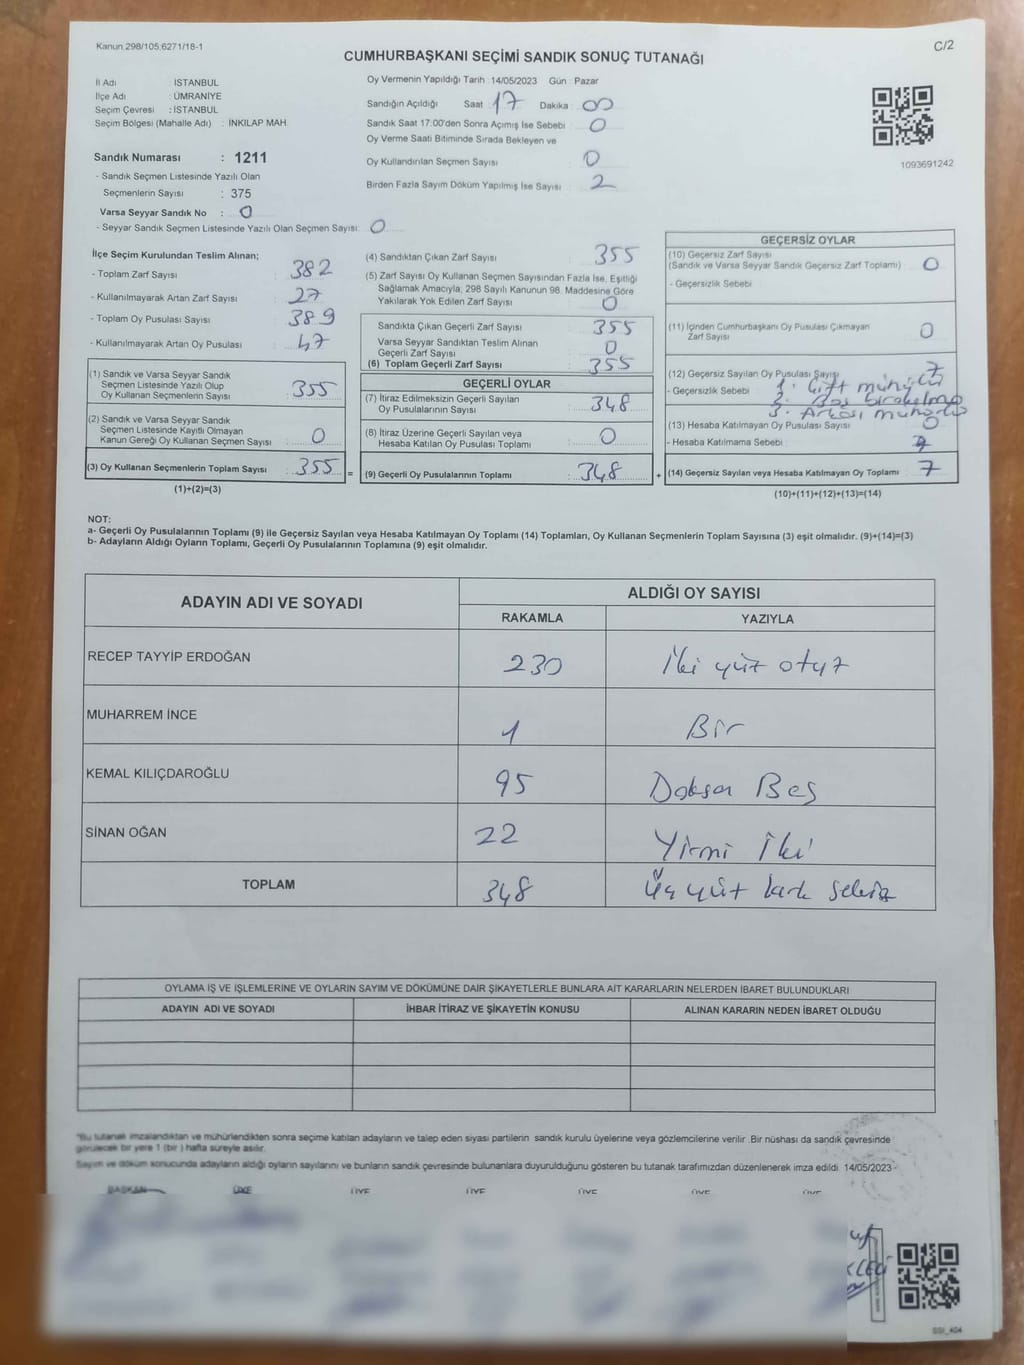 Kanun 298/105;6271/18-1
C/2
CUMHURBAŞKANI SEÇİMİ SANDIK SONUÇ TUTANAĞI
İl Adı : İSTANBUL
İlçe Adı : ÜMRANİYE
Seçim Çevresi : İSTANBUL
Seçim Bölgesi (Mahalle Adı) : İNKILAP MAH.
Sandık Numarası : 1211
- Sandık Seçmen Listesinde Yazılı Olan
Seçmenlerin Sayısı : 375
Varsa Seyyar Sandık No : 0
- Seyyar Sandık Seçmen Listesinde Yazılı Olan Seçmen Sayısı: 0
Oy Vermenin Yapıldığı Tarih : 14/05/2023 Gün : Pazar
Sandığın Açıldığı Saat : 17 Dakika : 00
Sandık Saat 17:00'den Sonra Açımış İse Sebebi : 0
Oy Verme Saati Bitiminde Sırada Bekleyen ve
Oy Kullandırılan Seçmen Sayısı : 0
Birden Fazla Sayım Döküm Yapılmış İse Sayısı : 2
1093691242
İlçe Seçim Kurulundan Teslim Alınan;
- Toplam Zarf Sayısı : 382
- Kullanılmayarak Artan Zarf Sayısı : 27
- Toplam Oy Pusulası Sayısı : 389
- Kullanılmayarak Artan Oy Pusulası : 47
(1) Sandık ve Varsa Seyyar Sandık
Seçmen Listesinde Yazılı Olup
Oy Kullanan Seçmenlerin Sayısı : 355
(2) Sandık ve Varsa Seyyar Sandık
Seçmen Listesinde Kayıtlı Olmayan
Kanun Gereği Oy Kullanan Seçmen Sayısı : 0
(3) Oy Kullanan Seçmenlerin Toplam Sayısı : 355 =
(1)+(2)=(3)
(4) Sandıktan Çıkan Zarf Sayısı : 355
(5) Zarf Sayısı Oy Kullanan Seçmen Sayısından Fazla İse, Eşitliği
Sağlamak Amacıyla, 298 Sayılı Kanunun 98. Maddesine Göre
Yakılarak Yok Edilen Zarf Sayısı : 0
Sandıkta Çıkan Geçerli Zarf Sayısı : 355
Varsa Seyyar Sandıktan Teslim Alınan
Geçerli Zarf Sayısı : 0
(6) Toplam Geçerli Zarf Sayısı : 355
GEÇERLİ OYLAR
(7) İtiraz Edilmeksizin Geçerli Sayılan
Oy Pusulalarının Sayısı : 348
(8) İtiraz Üzerine Geçerli Sayılan veya
Hesaba Katılan Oy Pusulası Toplamı : 0
(9) Geçerli Oy Pusulalarının Toplamı : 348 +
GEÇERSİZ OYLAR
(10) Geçersiz Zarf Sayısı
(Sandık ve Varsa Seyyar Sandık Geçersiz Zarf Toplamı) : 0
- Geçersizlik Sebebi
(11) İçinden Cumhurbaşkanı Oy Pusulası Çıkmayan
Zarf Sayısı : 0
(12) Geçersiz Sayılan Oy Pusulası Sayısı : 7
- Geçersizlik Sebebi 1. Çift mühür
2. Boş
3. Arkası
(13) Hesaba Katılmayan Oy Pusulası Sayısı : 0
- Hesaba Katılmama Sebebi :
(14) Geçersiz Sayılan veya Hesaba Katılmayan Oy Toplamı : 7
(10)+(11)+(12)+(13)=(14)
NOT:
a- Geçerli Oy Pusulalarının Toplamı (9) ile Geçersiz Sayılan veya Hesaba Katılmayan Oy Toplamı (14) Toplamları, Oy Kullanan Seçmenlerin Toplam Sayısına (3) eşit olmalıdır. (9)+(14)=(3)
b- Adayların Aldığı Oyların Toplamı, Geçerli Oy Pusulalarının Toplamına (9) eşit olmalıdır.
ADAYIN ADI VE SOYADI ALDIĞI OY SAYISI
RAKAMLA YAZIYLA
RECEP TAYYİP ERDOĞAN 230 İki yüz otuz
MUHARREM İNCE 1 Bir
KEMAL KILIÇDAROĞLU 95 Doksan Beş
SİNAN OĞAN 22 Yirmi İki
TOPLAM 348 Üç yüz kırk sekiz
OYLAMA İŞ VE İŞLEMLERİNE VE OYLARIN SAYIM VE DÖKÜMÜNE DAİR ŞİKAYETLERLE BUNLARA AİT KARARLARIN NELERDEN İBARET BULUNDUKLARI
ADAYIN ADI VE SOYADI İHBAR İTİRAZ VE ŞİKAYETİN KONUSU ALINAN KARARIN NEDEN İBARET OLDUĞU
"Bu tutanak imzalandıktan ve mühürlendikten sonra seçime katılan adayların ve talep eden siyasi partilerin sandık kurulu üyelerine veya gözlemcilerine verilir. Bir nüshası da sandık çevresinde
görülecek bir yere 1 (bir ) hafta süreyle asılır.
Sayım ve döküm sonucunda adayların aldığı oyların sayılarını ve bunların sandık çevresinde bulunanlara duyurulduğunu gösteren bu tutanak tarafımızdan düzenlenerek imza edildi. 14/05/2023-
BAŞKAN ÜYE ÜYE ÜYE ÜYE ÜYE ÜYE